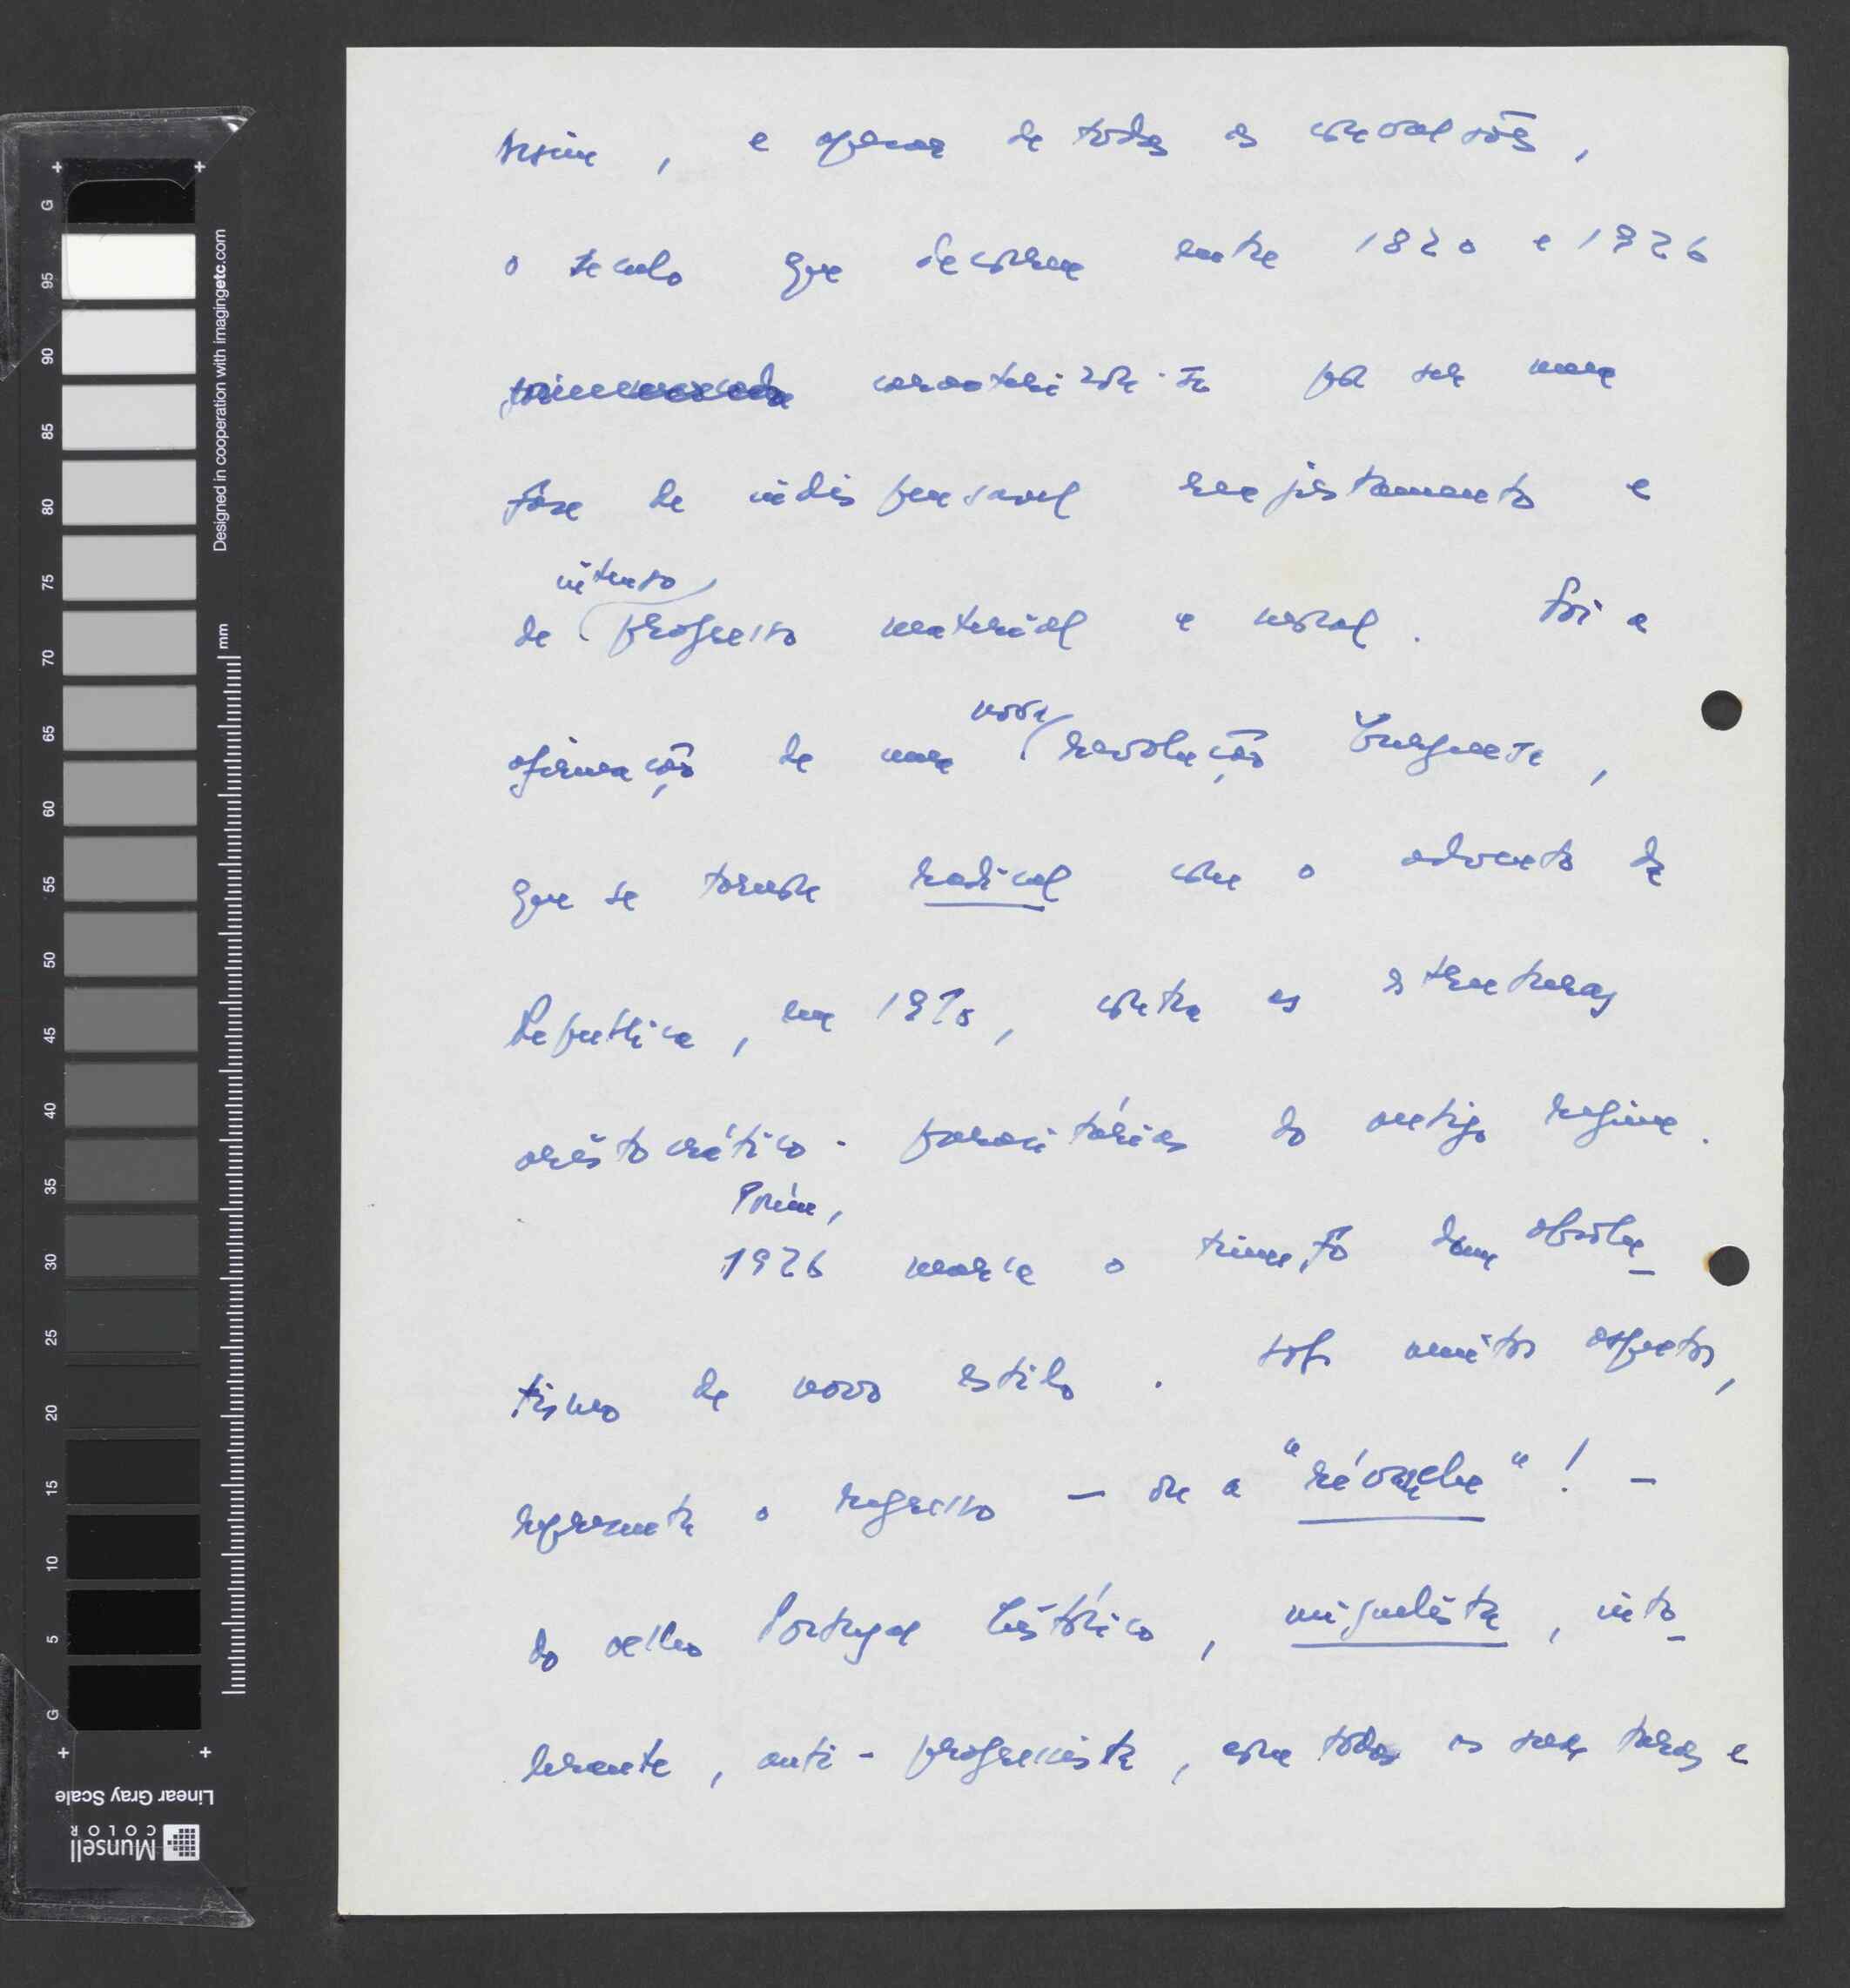 Assim, e apesar de todas as convulsões,
o seculo que decorreu entre 1820 e 1926
caracterizou-se por ser uma
fase de indispensavel reajustamento e
intenso
de progresso material e moral. Foi a
nova
afirmação de uma revolução burguesa,
que se tornou radical com o advento da
Republica, em 1910, contra as estruturas
aristocrático-parasitárias do antigo regime.
Porém,
1926 marca o triunfo dum absolu-
tismo de novo estilo. Sob muitos aspectos,
representa o regresso — ou a "révanche"! —
do velho Portugal histórico, miguelista, into-
lerante, anti-progressista, com todas as suas taras e
G
95
90
85
80
75
70
65
60
55
50
45
40
35
30
25
20
15
10
5
G
mm
Designed in cooperation with imagingetc.com
Linear Gray Scale
Munsell
COLOR